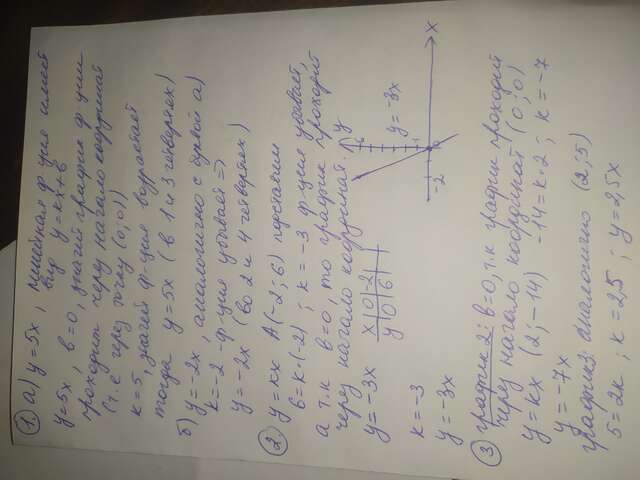 ① а) y=5x, линейная ф-ция имеет
вид y=kx+b
y=5x, b=0, значит график ф-ции
проходит через начало координат
(т.е через точку (0;0))
k=5, значит ф-ция возрастает
тогда y=5x (в 1 и 3 четвертях)
б) y=-2x, аналогично с буквой а)
k=-2 -ф-ция убывает =>
y=-2x (во 2 и 4 четвертях)
② y=kx A(-2;6) подставим
6=k·(-2); k=-3 ф-ция убывает,
а т.к b=0, то график проходит
через начало координат.
y=-3x
x|0|-2|
y|0|6|
y
6
y=-3x
1
0
-2
x
k=-3
y=-3x
③ график 2: b=0, т.к график проходит
через начало координат (0;0)
y=kx (2;-14) -14=k·2; k=-7
y=-7x
график3: аналогично (2;5)
5=2k; k=2,5; y=2,5x